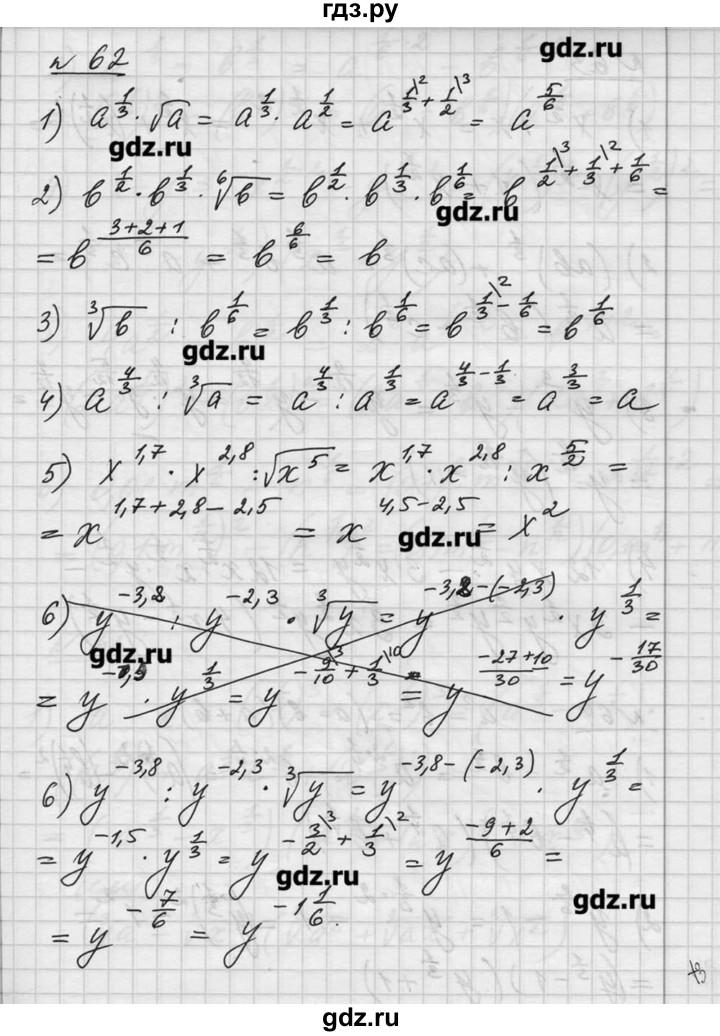 гдз.ру
gdz.ru
n 62
1) a^(1/3) · √a = a^(1/3) · a^(1/2) = a^(1/3\2 + 1/2\3) = a^(5/6)
gdz.ru
2) b^(1/2) · b^(1/3) · ⁶√b = b^(1/2) · b^(1/3) · b^(1/6) = b^(1/2\3 + 1/3\2 + 1/6) =
gdz.ru
= b^((3+2+1)/6) = b^(6/6) = b
3) ³√b : b^(1/6) = b^(1/3) : b^(1/6) = b^(1/3\2 - 1/6) = b^(1/6)
gdz.ru
4) a^(4/3) : ³√a = a^(4/3) : a^(1/3) = a^(4/3 - 1/3) = a^(3/3) = a
5) x^(1,7) · x^(2,8) : √x^5 = x^(1,7) · x^(2,8) : x^(5/2) =
= x^(1,7+2,8-2,5) = x^(4,5-2,5) = x^2
gdz.ru
6) y^(-3,2) : y^(-2,3) · ³√y = y^(-3,2-(-2,3)) · y^(1/3) =
gdz.ru
= y^(-0,9) · y^(1/3) = y^(-9/10\3 + 1/3\10) = y^((-27+10)/30) = y^(-17/30)
6) y^(-3,8) : y^(-2,3) · ³√y = y^(-3,8-(-2,3)) · y^(1/3) =
= y^(-1,5) · y^(1/3) = y^(-3/2\3 + 1/3\2) = y^((-9+2)/6) =
gdz.ru
gdz.ru
= y^(-7/6) = y^(-1 1/6).
гдз.ру
gdz.ru